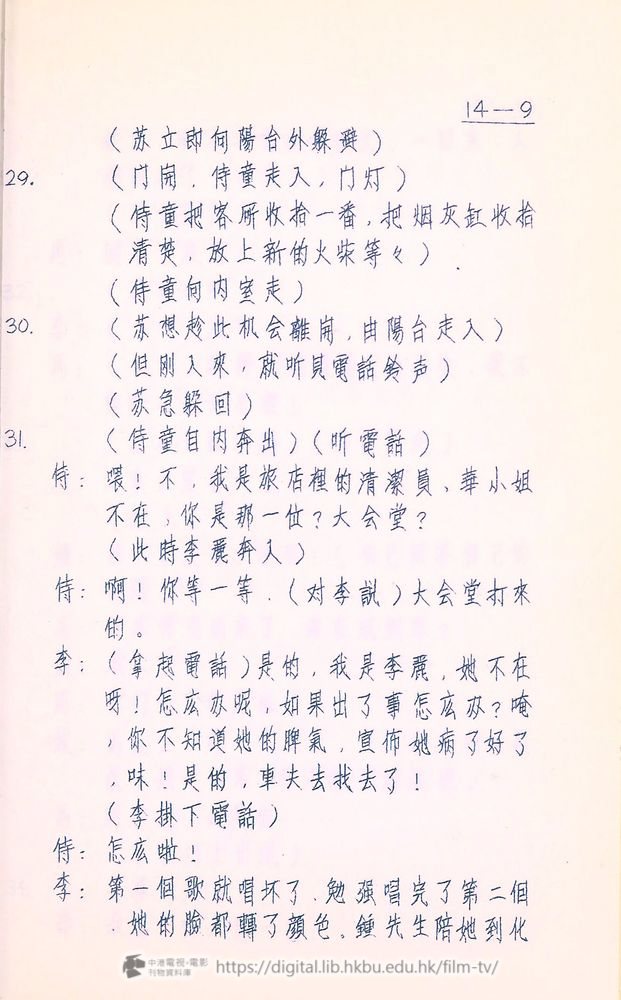 14-9
（苏立即向陽台外躲避）
29. （门開．侍童走入，门灯）
（侍童把客所收拾一番，把烟灰缸收拾
清楚，放上新的火柴等々）
（侍童向内室走）
30. （苏想趁此机会離開，由陽台走入）
（但刚入來，就听見電話鈴声）
（苏急躲回）
31. （侍童自内奔出）（听電話）
侍：喂！不，我是旅店裡的清潔員、華小姐
不在，你是那一位？大会堂？
（此時李麗奔入）
侍：啊！你等一等．（对李説）大会堂打來
的。
李：（拿起電話）是的，我是李麗，她不在
呀！怎庅办呢，如果出了事怎庅办？唵
，你不知道她的脾氣，宣佈她病了好了
，味！是的，車夫去找去了！
（李掛下電話）
侍：怎庅啦！
李：第一個歌就唱坏了．勉强唱完了第二個
．她的臉都轉了顏色、鍾先生陪她到化
中港電視·電影
刊物資料庫
https://digital.lib.hkbu.edu.hk/film-tv/